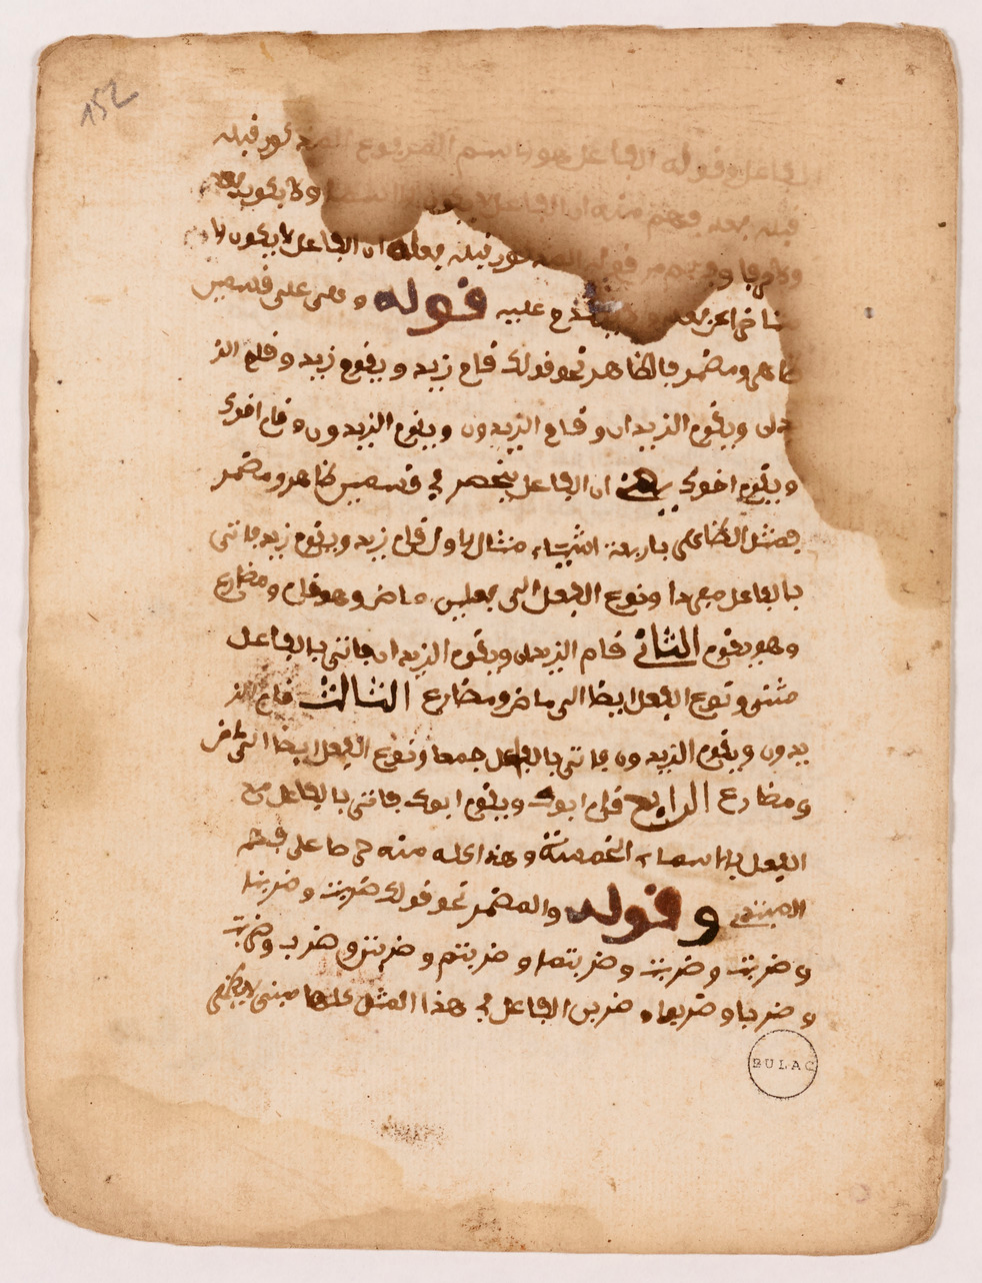 152
الفاعل وقوله الفاعل هو الاسم المرفوع المذكور قبله
قبله فعله فهم منه ان الفاعل لا يكون الا اسما ولا يكون فعلا
ولا حرفا وفهم من قوله المذكور قبله فعله ان الفاعل لا يكون
عليه قوله وهو على قسمين
ظاهر ومضمر فالظاهر نحو قولك قام زيد ويقوم زيد وقام الز
يدان ويقوم الزيدان وقام الزيدون ويقوم الزيدون وقام اخوك
ويقوم اخوك يعني ان الفاعل ينحصر في قسمين ظاهر ومضمر
فمثل الظاهر باربعة اشياء مثال الاول قام زيد ويقوم زيد فاتى
بالفاعل مفردا ونوع الفعل الى فعلين ماض وهو قام ومضارع
وهو يقوم الثاني قام الزيدان ويقوم الزيدان فاتى بالفاعل
مثنى ونوع الفعل ايضا الى ماض ومضارع الثالث قام الز
يدون ويقوم الزيدون فاتى بالفاعل جمعا ونوع الفعل ايضا الى ماض
ومضارع الرابع قام ابوك ويقوم ابوك فاتى بالفاعل مع
الفعل بالاسماء الخمسة وهذا كله منه حرصا على فهم
المبتدي وقوله والمضمر نحو قولك ضربت وضربنا
وضربت وضربت وضربتما وضربتم وضربتن وضرب وضربت
وضربا وضربوا وضربن الفاعل في هذا المثل كلها مبني
BULAC